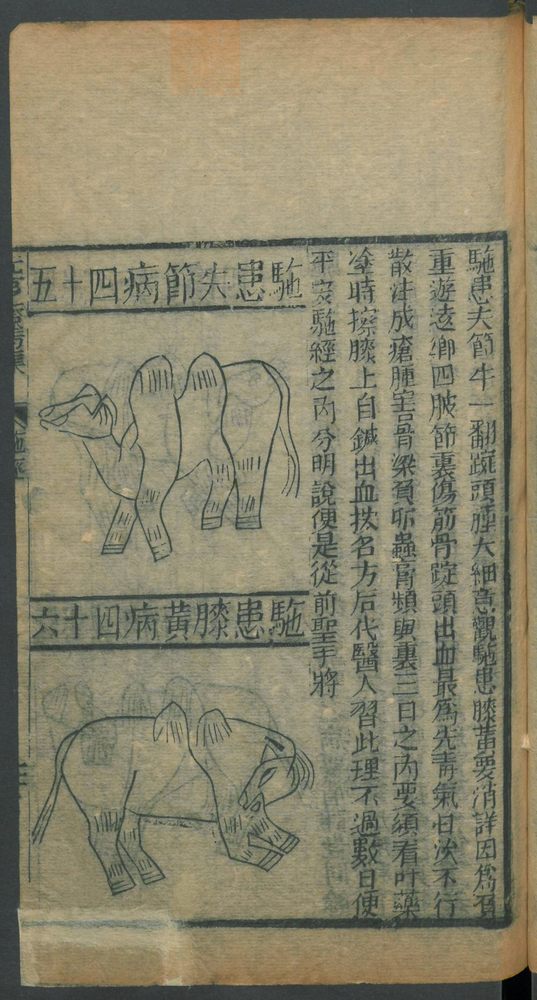 駞患失節牛一翻蹄頭腫大細意觀駞患膝黃要消詳因爲負
重遊遠鄉四肢節裏傷筋骨蹄頭出血最爲先毒氣日 不行
散注成瘡腫害骨梁負 蟲 頻與裏三日之內要須看叶藥
塗時擦膝上白鍼出血扶名方后代醫人習此理不過數日便
平安駞經之內分明說便是從前聖手將
駞患失節病四十五
駞患膝黃病四十六